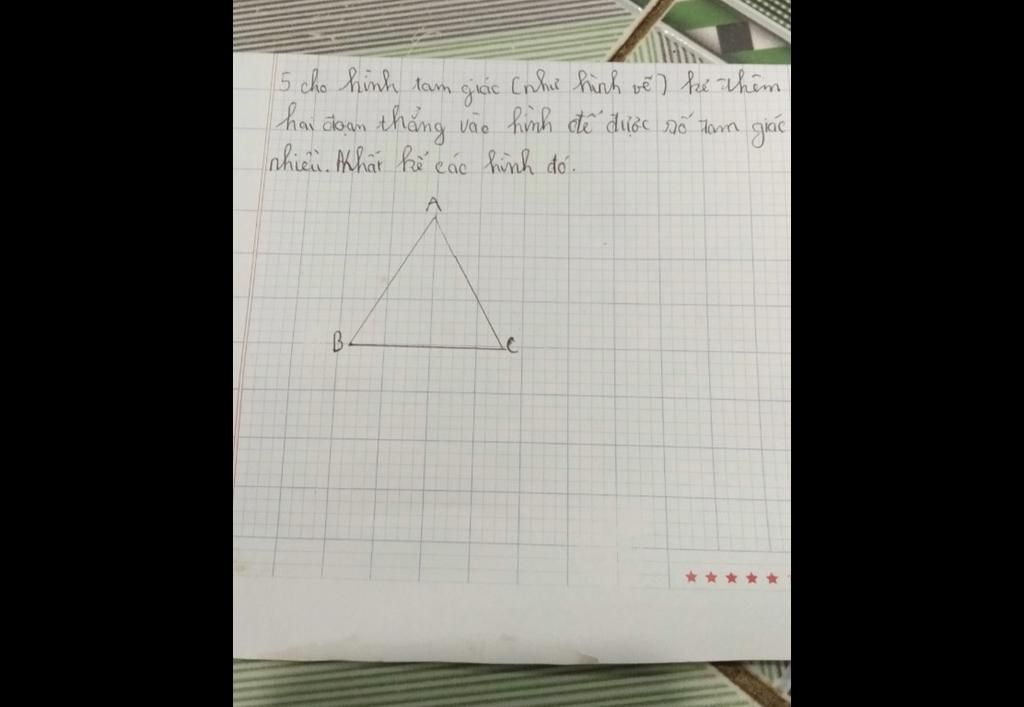 5 cho hình tam giác (như hình vẽ) kẻ thêm
hai đoạn thẳng vào hình để được số tam giác
nhiều. Nhất kể các hình đó.
A
B
C